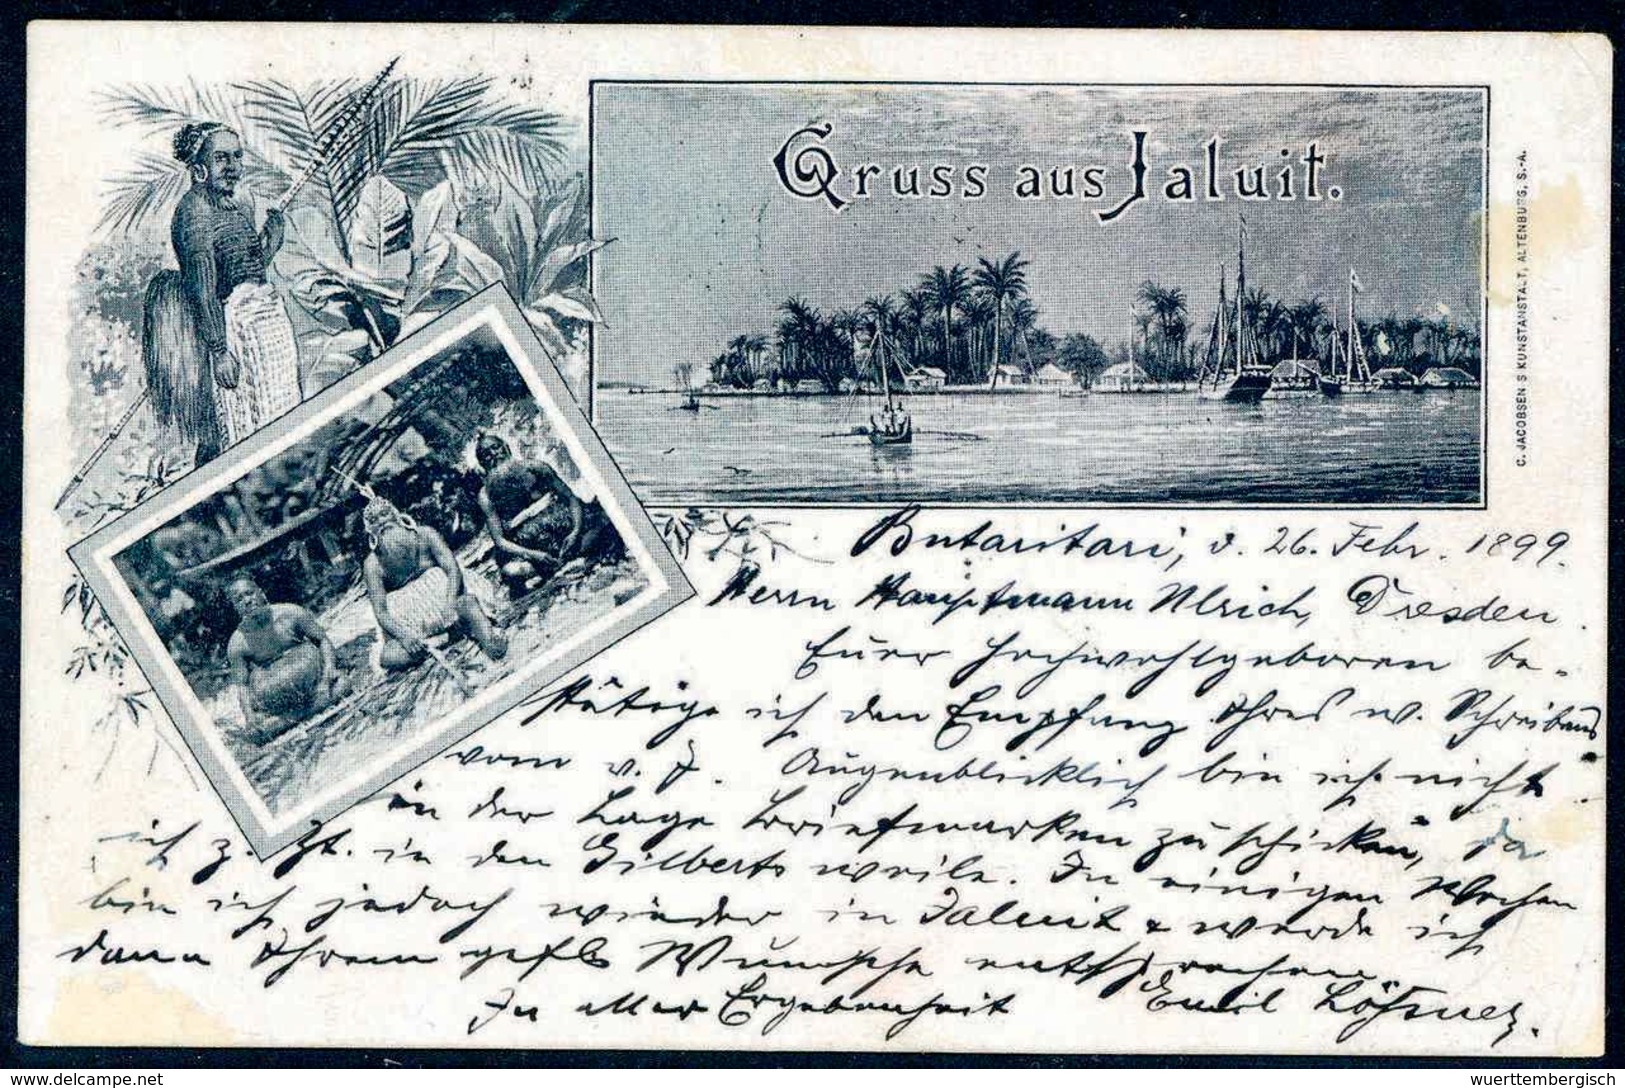 Gruss aus Jaluit.
C. JACOBSEN'S KUNSTANSTALT, ALTENBURG, S.-A.
Butaritari, d. 26. Febr. 1899.
Herrn Hauptmann Ulrich, Dresden.
Euer Hochwohlgeboren be-
stätige ich den Empfang Ihres w. Schreibens
vom v. J. Augenblicklich bin ich nicht
in der Lage Briefmarken zu schicken, da
ich z. Zt. in den Gilberts weile. In einigen Wochen
bin ich jedoch wieder in Jaluit & werde ich
dann Ihrem gefl. Wunsche entsprechen.
In aller Ergebenheit Emil
delcampe.net
wuerttembergisch